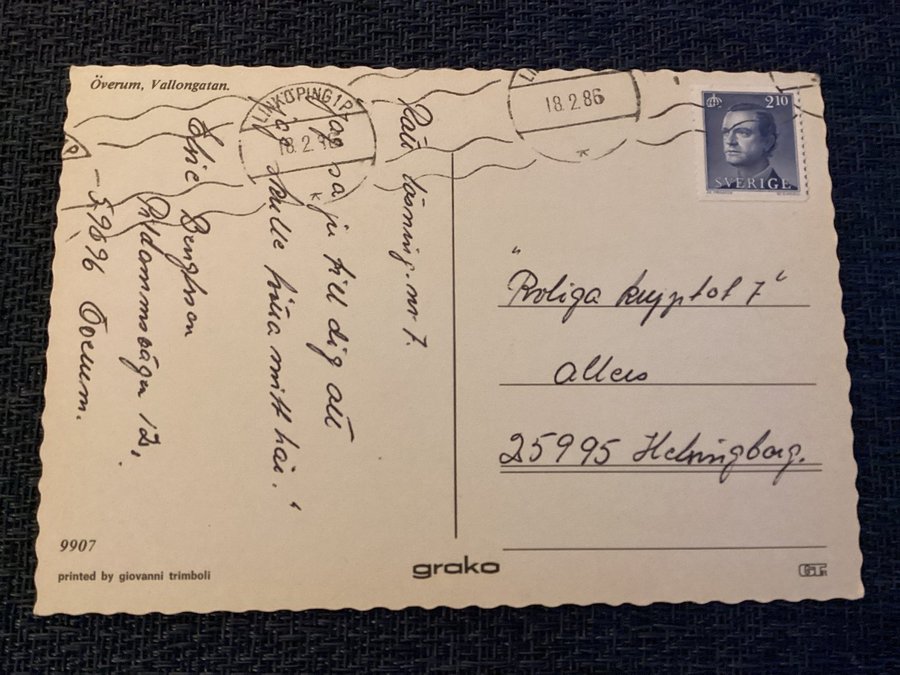 Överum, Vallongatan.
LINKÖPING 1
18.2.86
18.2.86
2.10
SVERIGE
Rätt lösning. nr 7.
"Jag sa ju till dig att
jag skulle hitta mitt hår."
Bengtson
12.
-59096 Överum.
"Roliga krypto 7"
Allers
25995 Helsingborg.
9907
printed by giovanni trimboli
grako